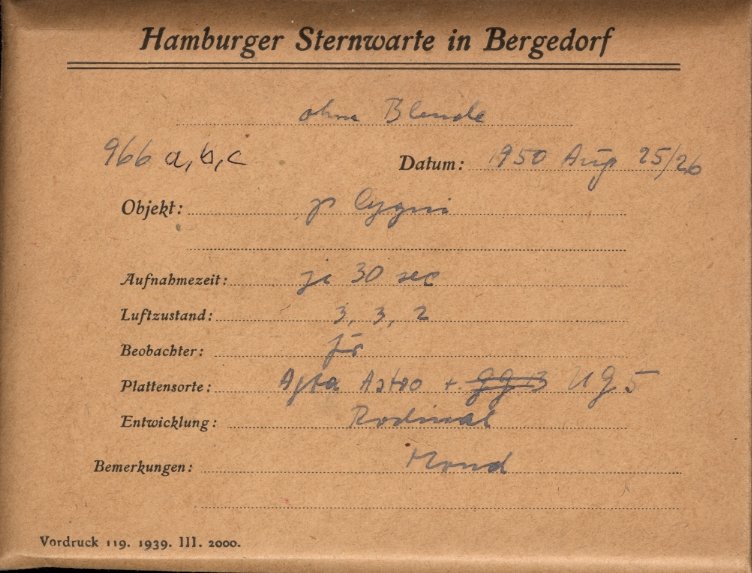 Hamburger Sternwarte in Bergedorf
ohne Blende
966 a, b, c Datum: 1950 Aug 25/26
Objekt: γ Cygni
Aufnahmezeit: je 30 sec
Luftzustand: 3, 3, 2
Beobachter:
Plattensorte: Agfa Astro + gg 3 Ug 5
Entwicklung: Rodinal
Bemerkungen: Mond
Vordruck 119. 1939. III. 2000.